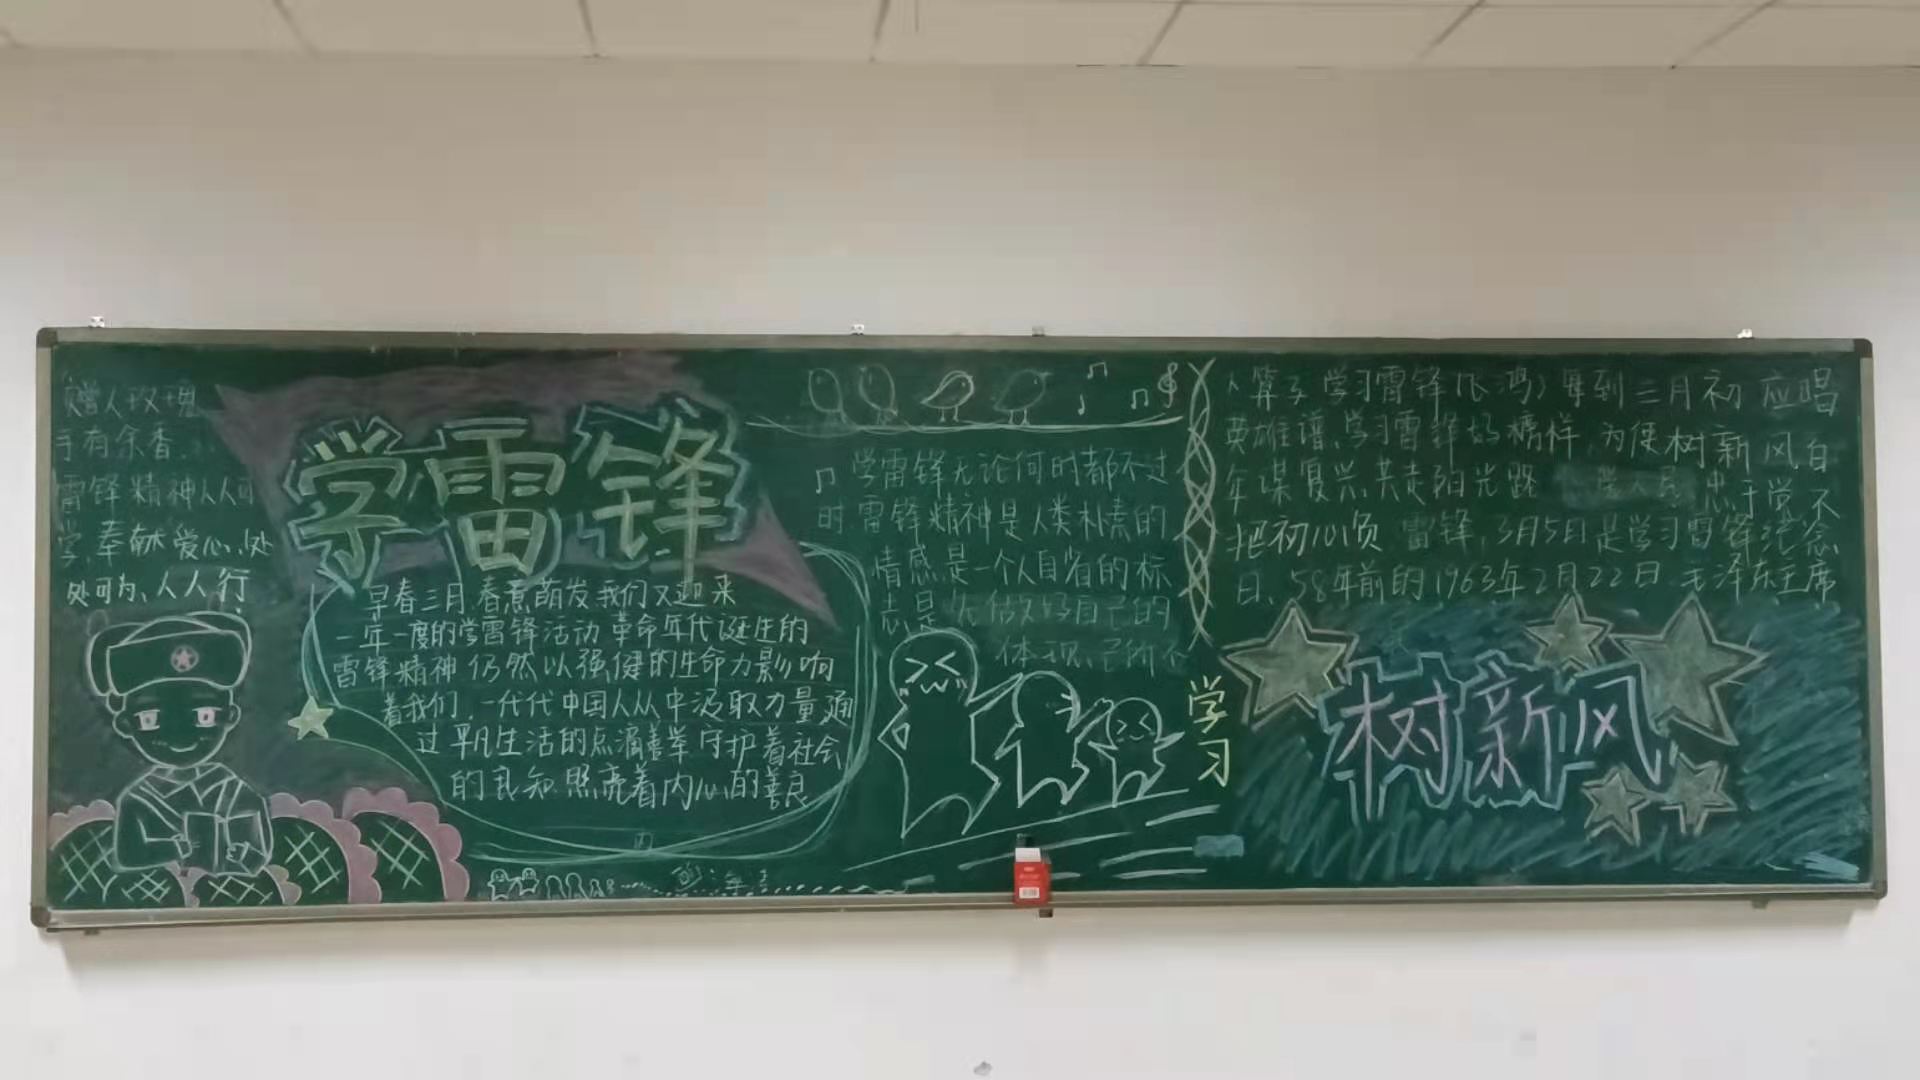 赠人玫瑰
手有余香.
雷锋精神人人可
学,奉献爱心,处
处可为、人人行
学雷锋
早春三月,春意萌发,我们又迎来
一年一度的学雷锋活动 革命年代诞生的
雷锋精神仍然以强健的生命力影响
着我们,一代代中国人从中汲取力量,通
过平凡生活的点滴善举守护着社会
的良知,照亮着内心的善良
学雷锋无论何时都不过
时.雷锋精神是人类朴素的
情感,是一个人自省的标
志是 先做好自己的
体现,己所不
学习
卜算子 学习雷锋(张鸿)每到三月初 应唱
英雄谱,学习雷锋好榜样,为使树新风 百
年谋复兴,共走阳光路 忠于党 不
把初心负.雷锋,3月5日是学习雷锋纪念
日、58年前的1963年2月22日 毛泽东主席
树新风